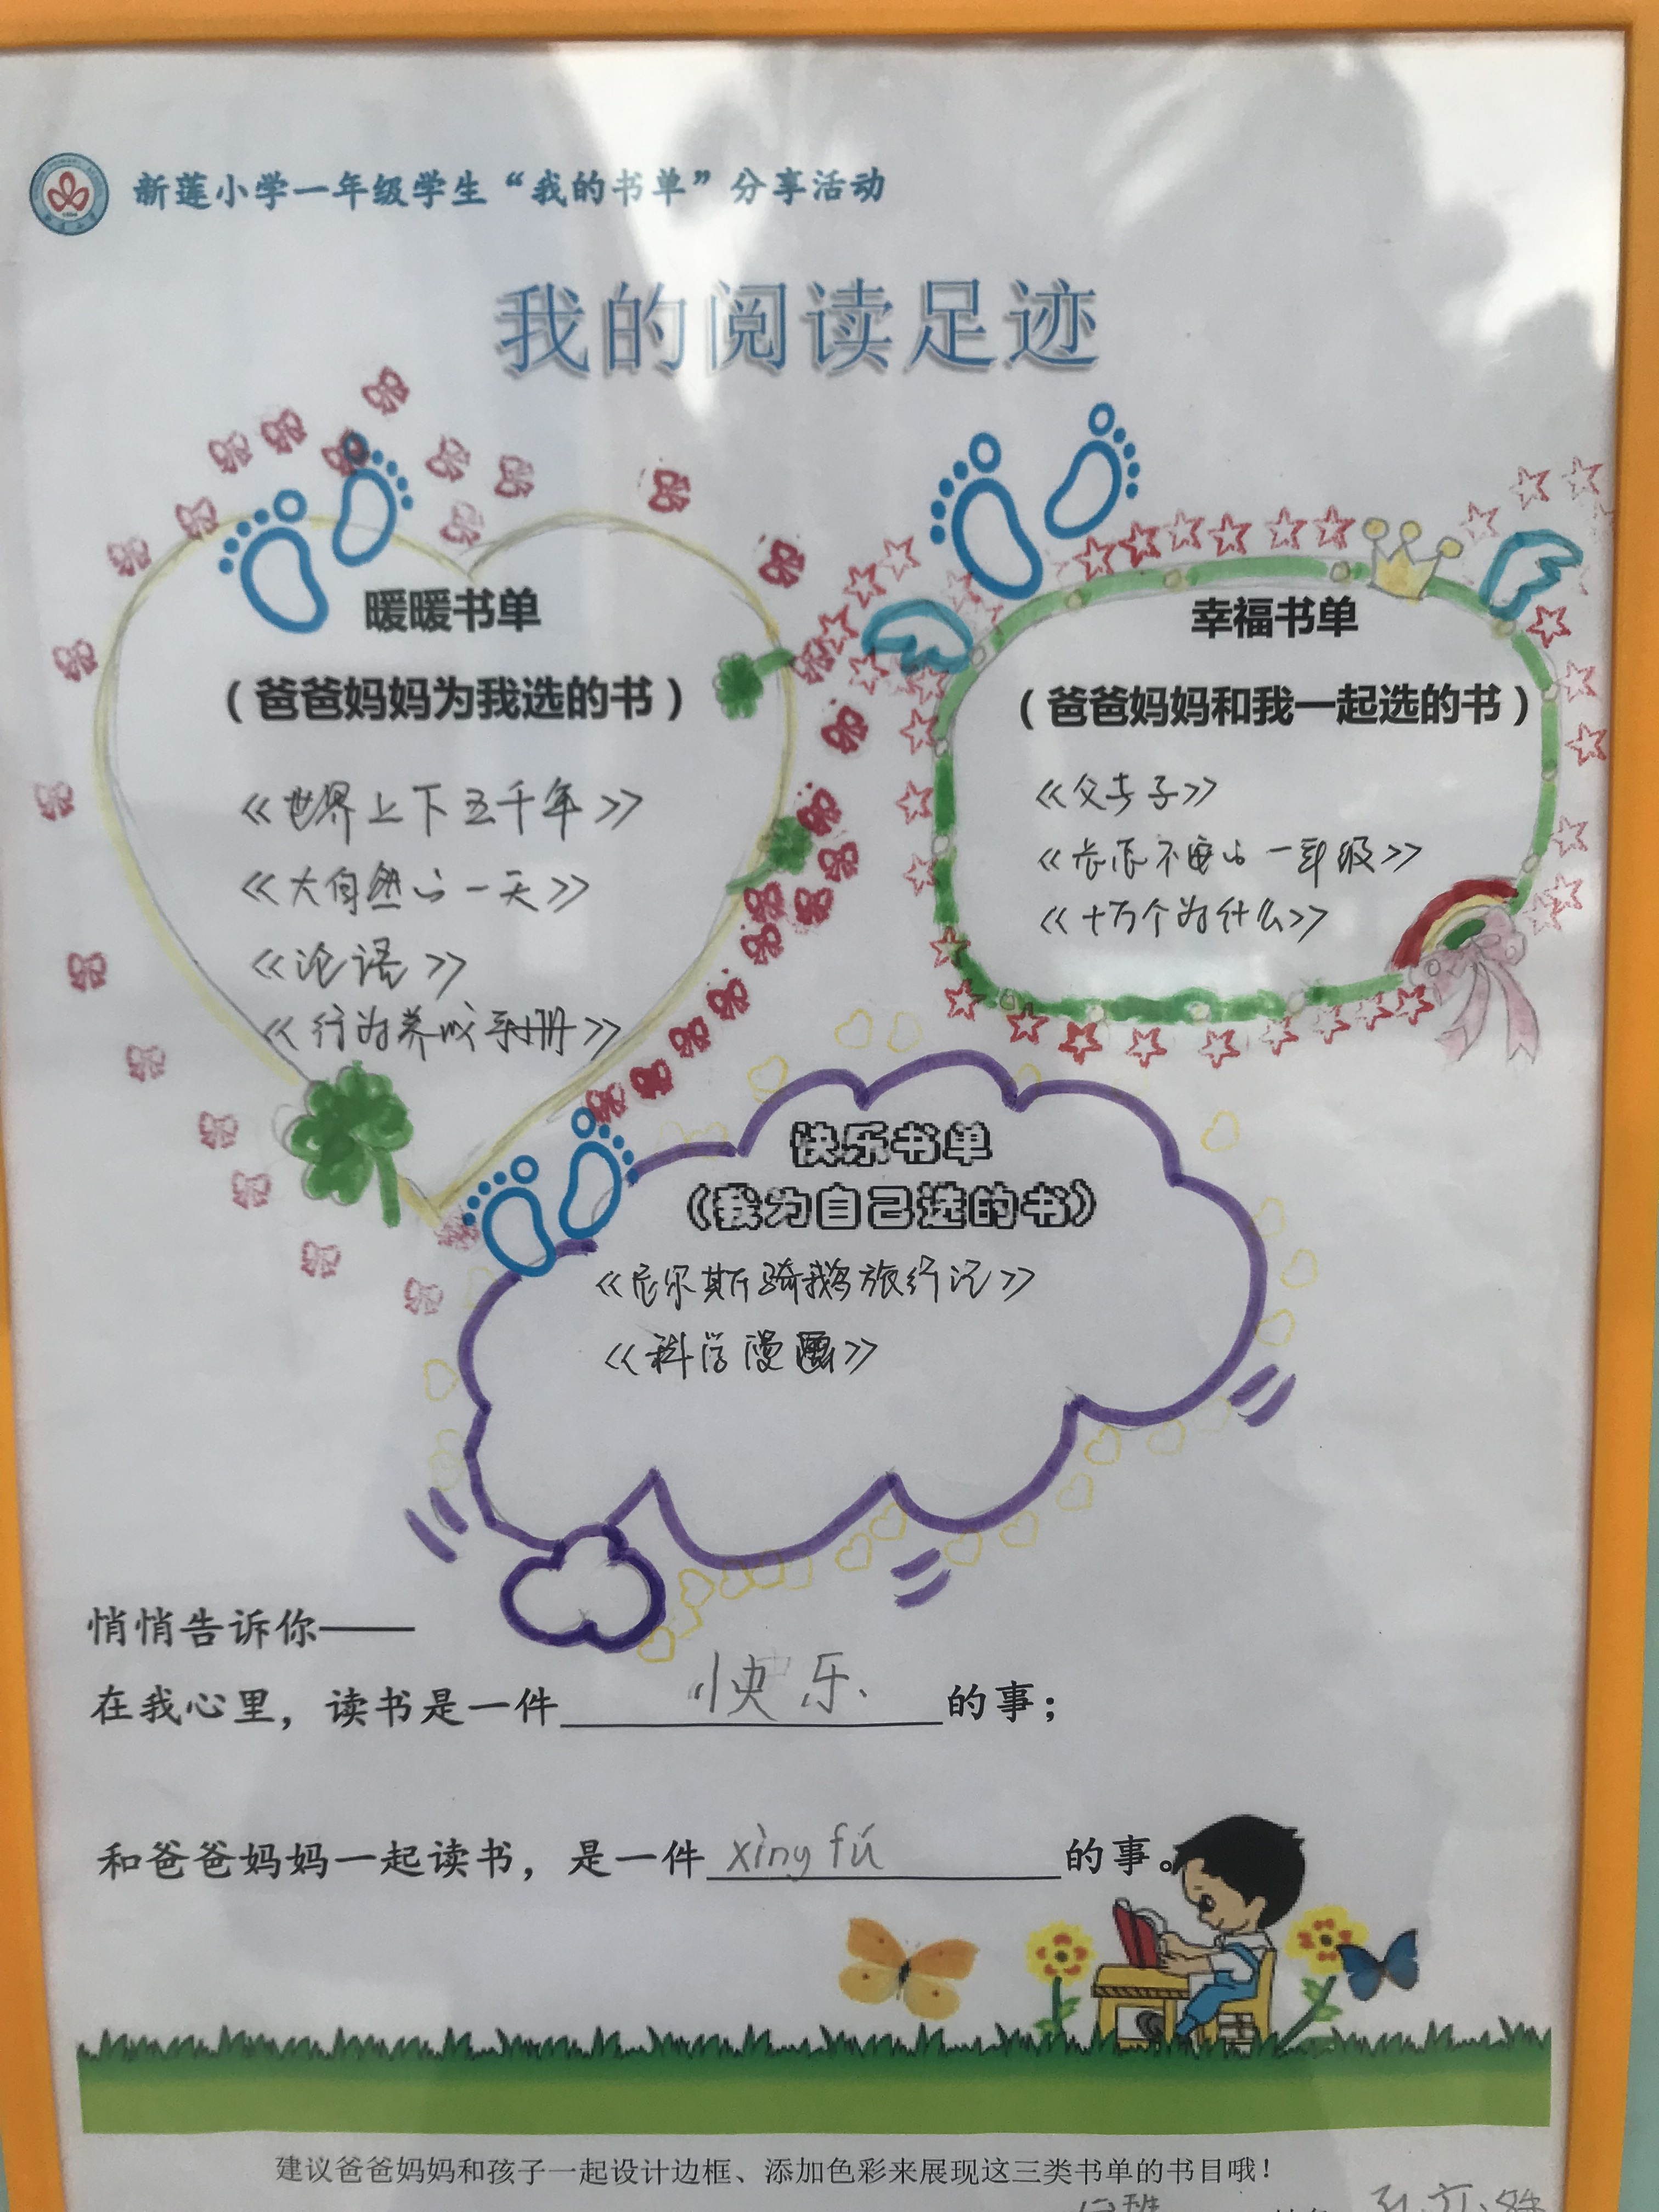 新莲小学一年级学生“我的书单”分享活动
我的阅读足迹
暖暖书单
（爸爸妈妈为我选的书）
《世界上下五千年》
《大自然的一天》
《论语》
《行为养成手册》
幸福书单
（爸爸妈妈和我一起选的书）
《父与子》
《一年级》
《十万个为什么》
快乐书单
（我为自己选的书）
《尼尔斯骑鹅旅行记》
《科学漫画》
悄悄告诉你——
在我心里，读书是一件 快乐 的事；
和爸爸妈妈一起读书，是一件 xìng fú 的事。
建议爸爸妈妈和孩子一起设计边框、添加色彩来展现这三类书单的书目哦！